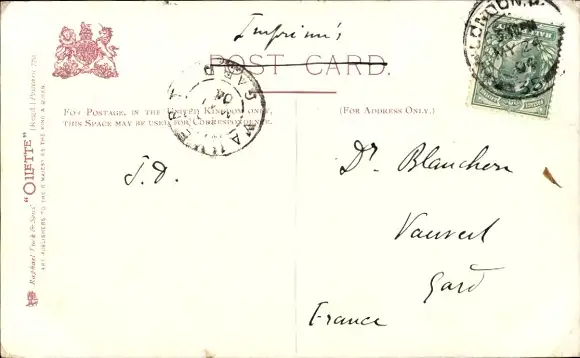 Imprimés
POST CARD.
FOR POSTAGE, IN THE UNITED KINGDOM ONLY,
THIS SPACE MAY BE USED FOR CORRESPONDENCE.
(FOR ADDRESS ONLY.)
J.D.
Dr. Blanchon
Vauvert
Gard
France
Raphael Tuck & Sons' "OILETTE" [Regd.] Postcard
ART PUBLISHERS TO THEIR MAJESTIES THE KING & QUEEN
LONDON.